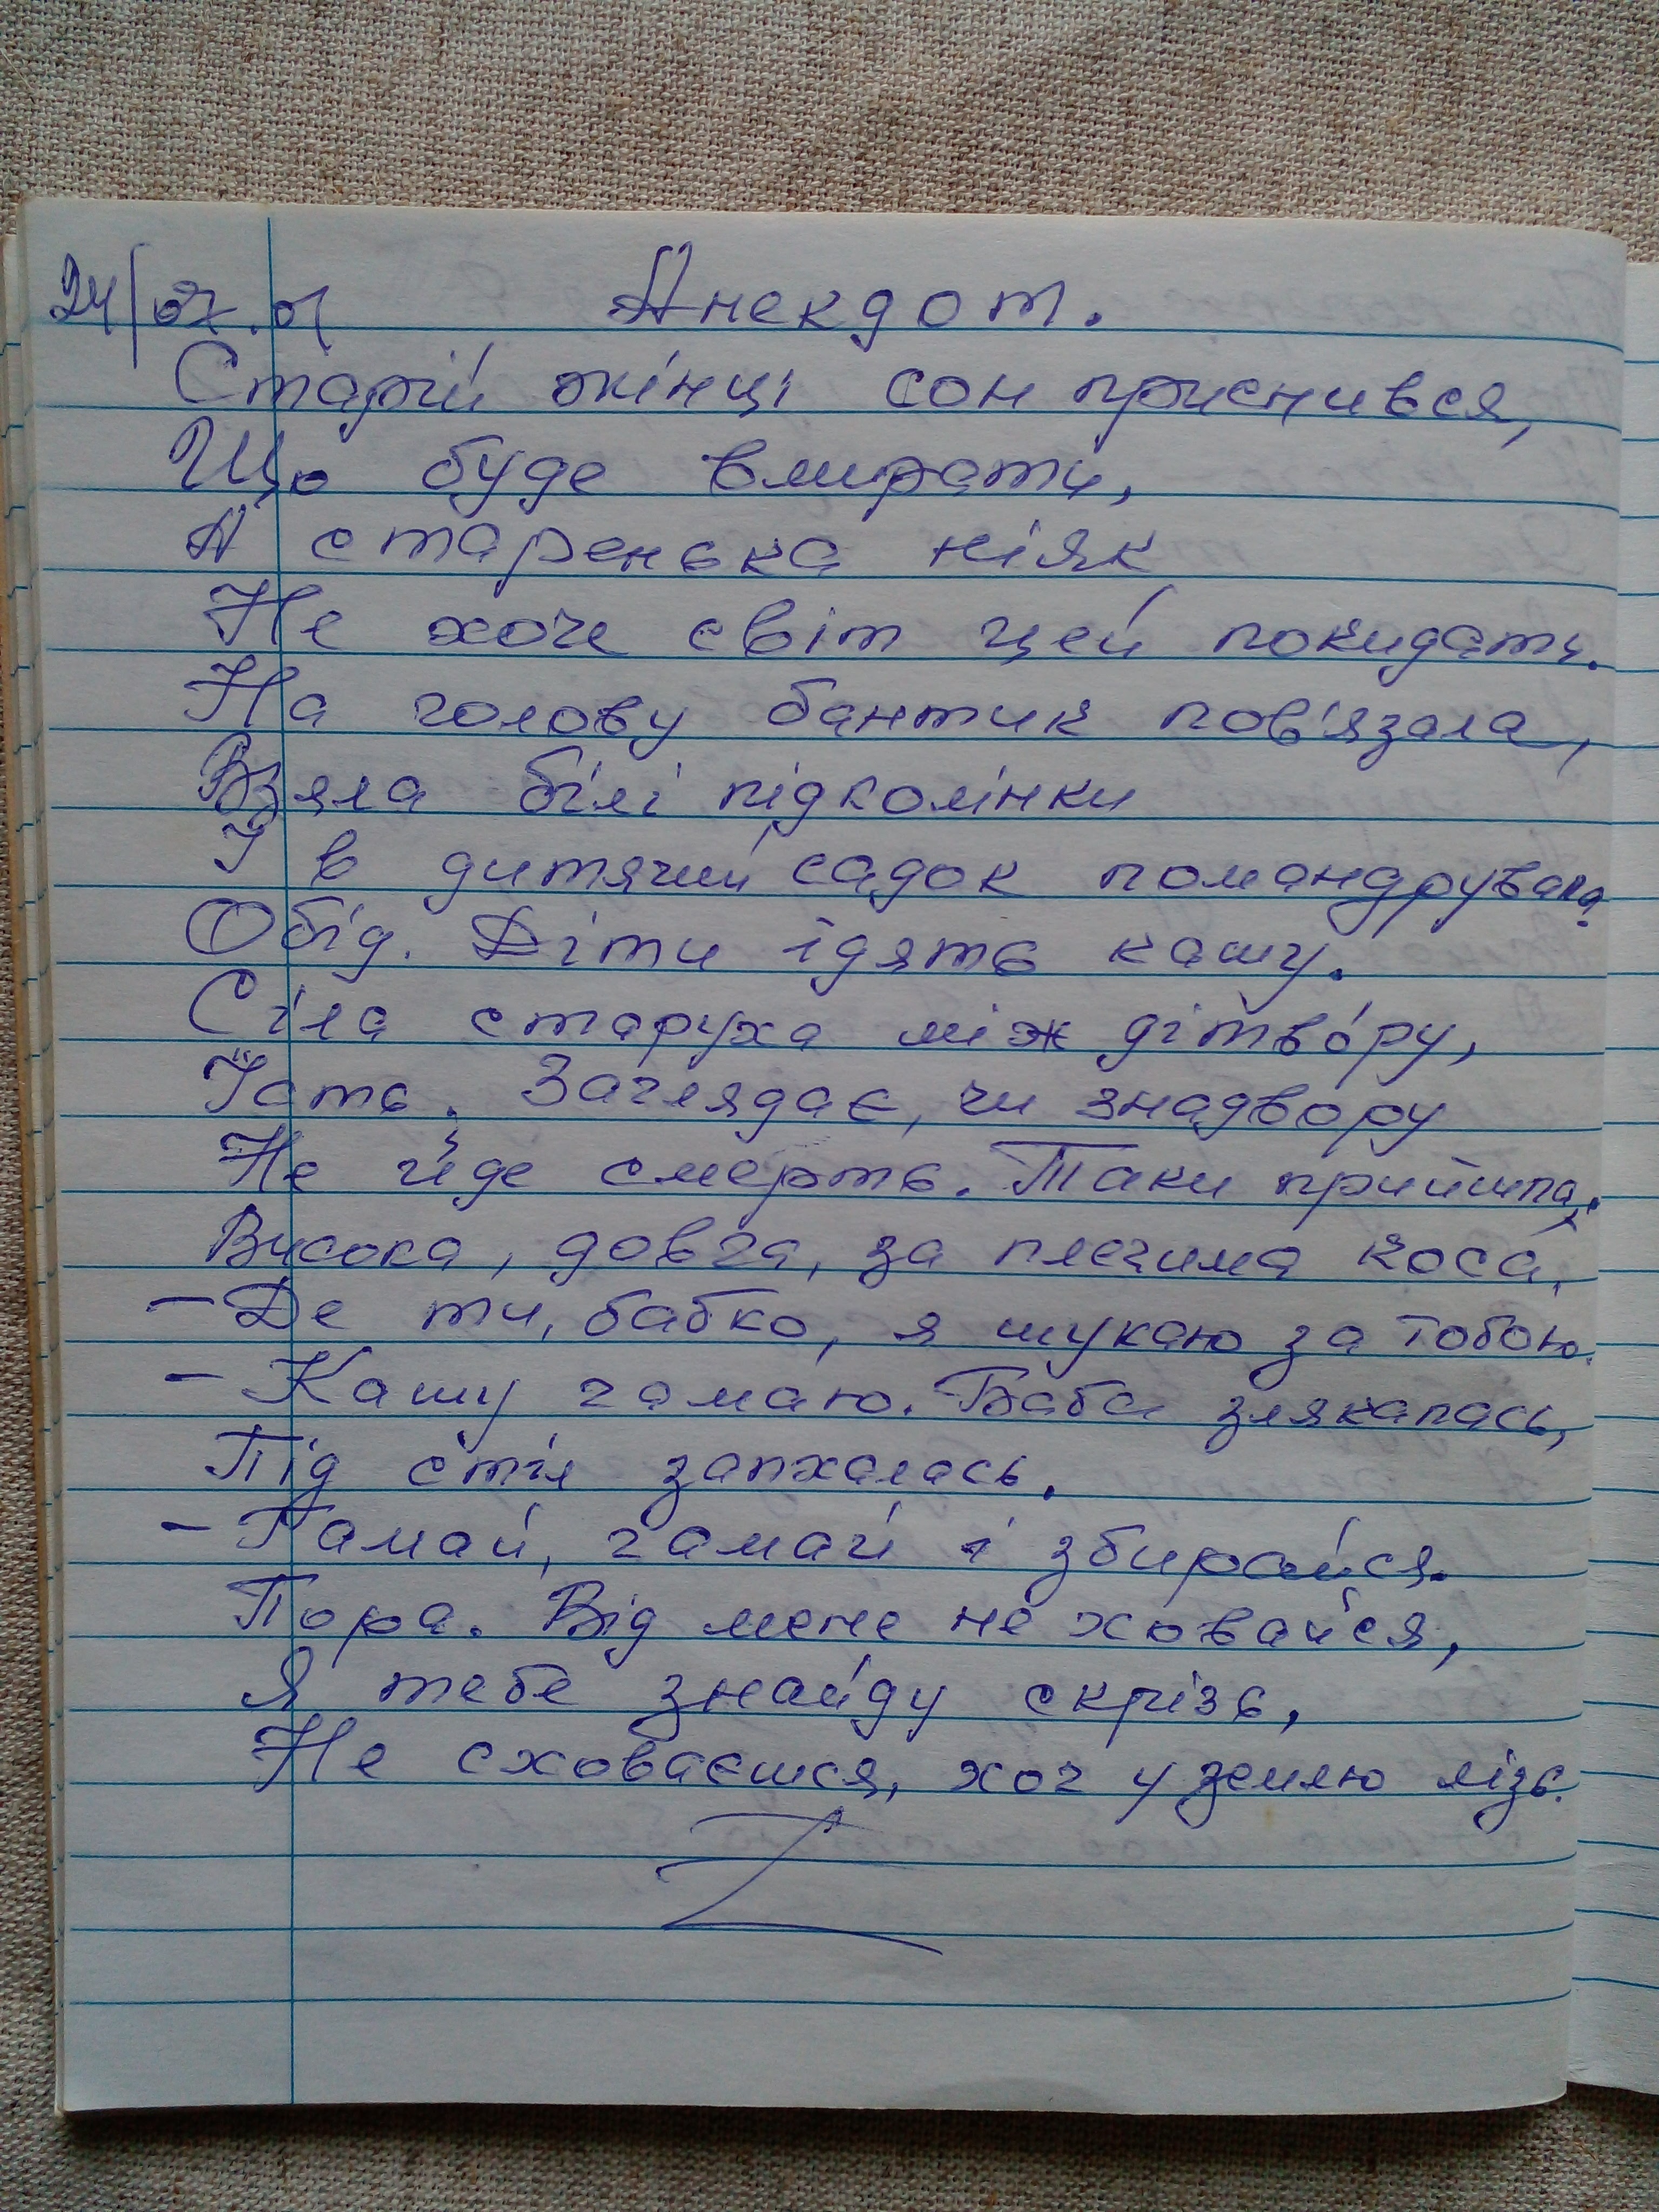 24/07.01 Анекдот.
Старій жінці сон приснився,
Що буде вмирати,
А старенька ніяк
Не хоче світ цей покидати.
На голову бантик пов'язала,
Взяла білі підколінки
І в дитячий садок помандрувала.
Обід. Діти їдять кашу.
Сіла старуха між дітвóру,
Їсть. Заглядає, чи знадвору
Не йде смерть. Таки прийшла,
Висока, довга, за плечима коса,
– Де ти, бабко, я шукаю за тобою.
– Кашу гамаю. Баба злякалась,
Під стіл запхалась.
– Гамай, гамай і збирайся.
Пора. Від мене не ховайся,
Я тебе знайду скрізь,
Не сховаєшся, хоч у землю лізь.